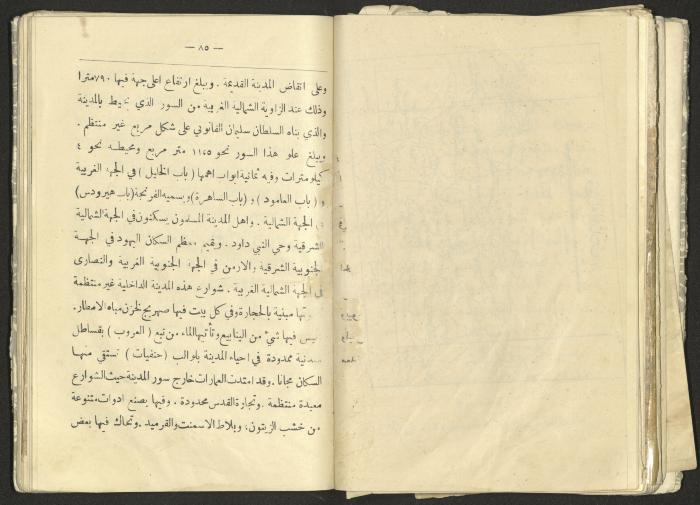 — ٨٥ —
وعلى انقاض المدينة القديمة . ويبلغ ارتفاع اعلى جهة فيها ٧٩٠ مترا
وذلك عند الزاوية الشمالية الغربية من السور الذي يحيط بالمدينة
والذي بناه السلطان سليمان القانوني على شكل مربع غير منتظم .
ويبلغ علو هذا السور نحو ١١٬٧٥ متر مربع ومحيطه نحو ٤
كيلو مترات وفيه ثمانية ابواب اهمها ( باب الخليل ) في الجهة الغربية
و ( باب العامود ) و ( باب الساهرة ) ويسميه الفرنجة (باب هيرودس)
في الجهة الشمالية . واهل المدينة المسلمون يسكنون في الجهة الشمالية
الشرقية وحي النبي داود . ويقيم معظم السكان اليهود في الجهة
الجنوبية الشرقية والارمن في الجهة الجنوبية الغربية والنصارى
في الجهة الشمالية الغربية . شوارع هذه المدينة الداخلية غير منتظمة
مبنية بالحجارة وفي كل بيت فيها صهريج لخزن مياه الامطار .
فيها شيء من الينابيع وتأتيها الماء من نبع ( العروب ) بقساطل
ممدودة في احياء المدينة بلوالب ( حنفيات ) تستقي منها
السكان مجانا . وقد امتدت العمارات خارج سور المدينة حيث الشوارع
معبدة منتظمة . وتجارة القدس محدودة . وفيها يصنع ادوات متنوعة
من خشب الزيتون ، وبلاط الاسمنت والقرميد . وتحاك فيها بعض